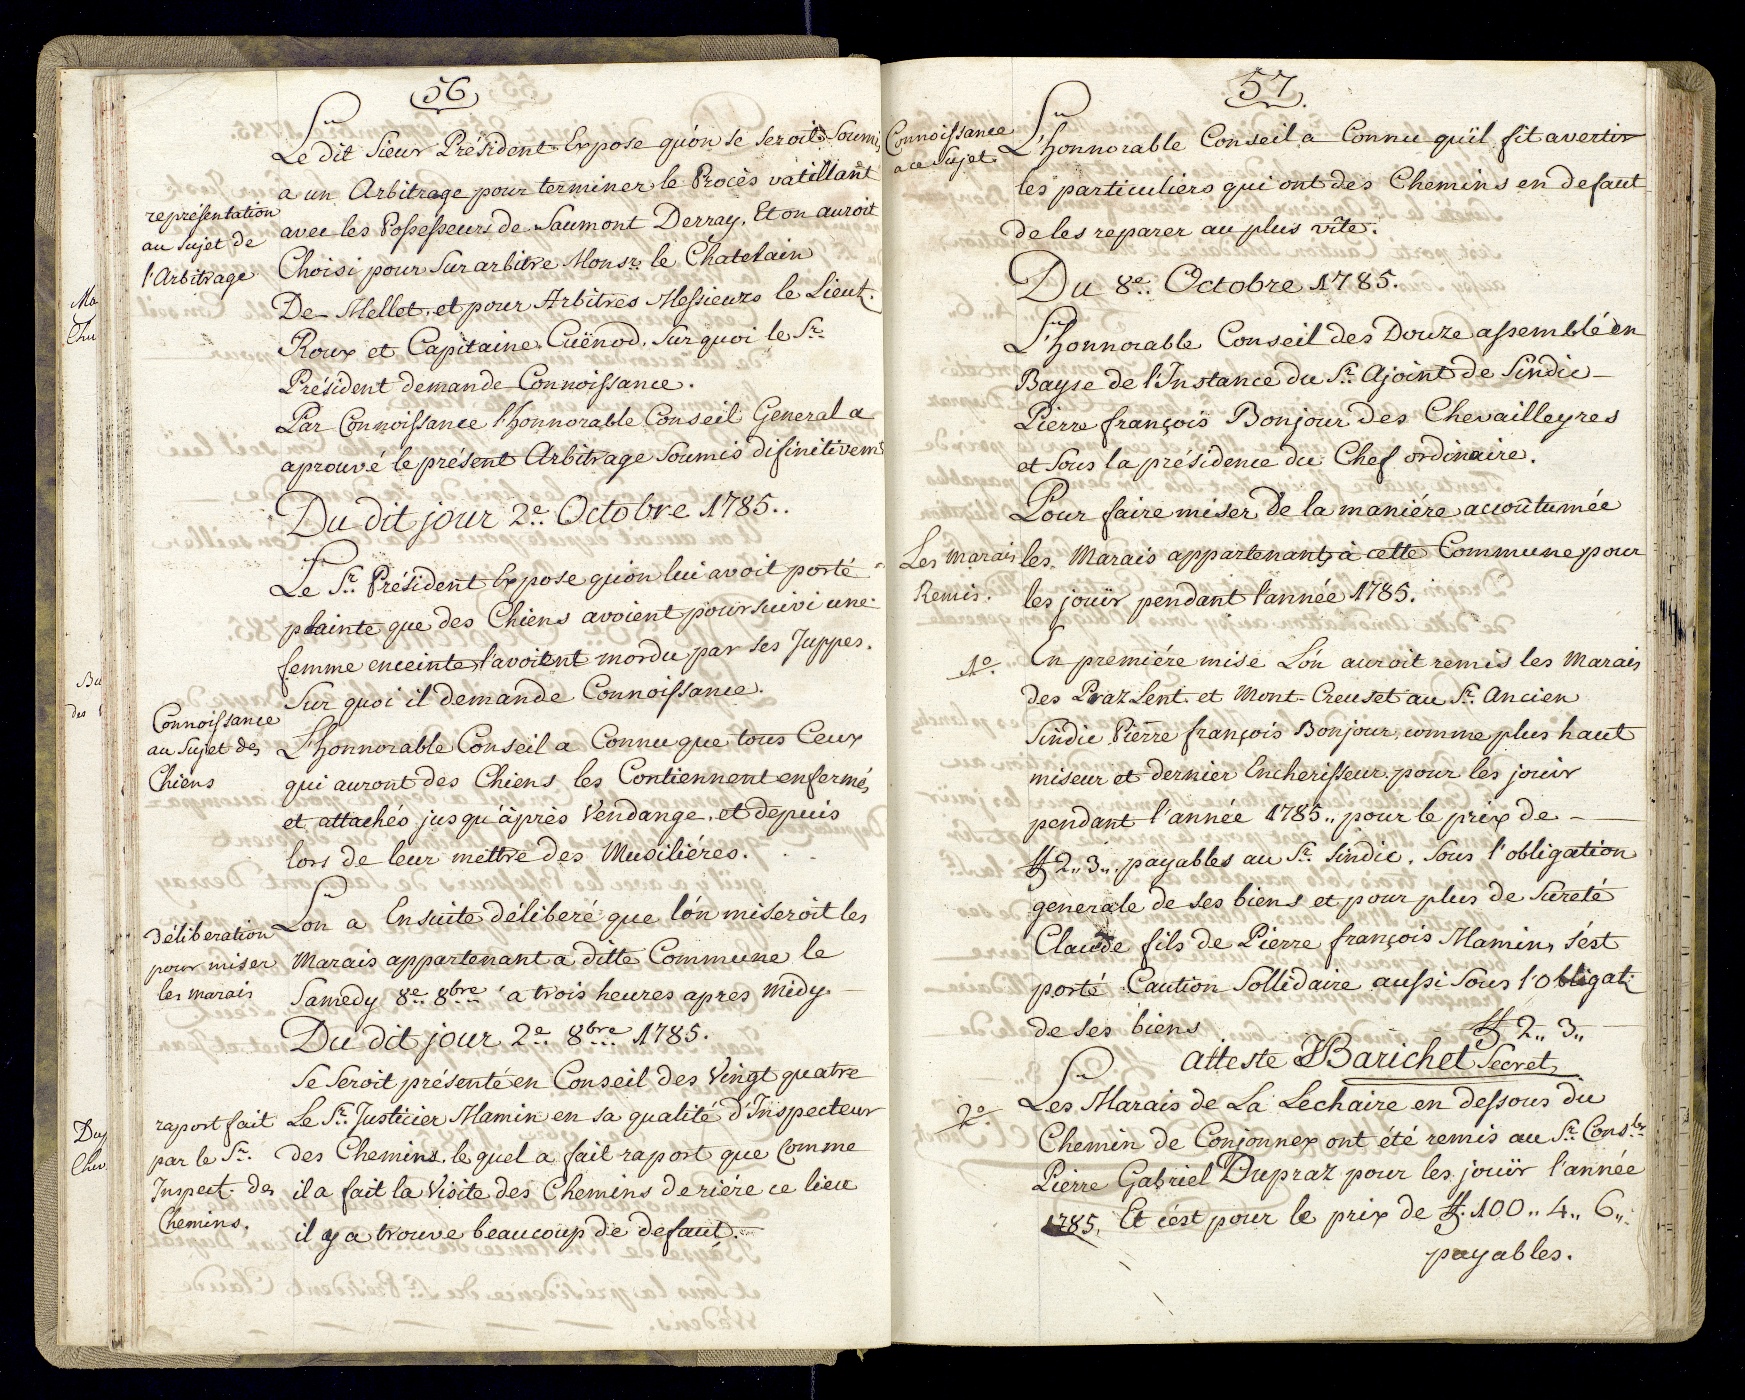 56
Le dit Sieur Président Expose qu'on se seroit Soumis
a un Arbitrage pour terminer le Procès vatillant
représentation
au Sujet de
l'Arbitrage
avec les Possesseurs de Saumont Derray, Et on auroit
Choisi pour Surarbitre Monsr. le Chatelain
De Mellet, et pour Arbitres Messieurs le Lieut.
Roux et Capitaine Cuënod, Sur quoi le Sr.
Président demande Connoissance.
Par Connoissance l'honnorable Conseil General a
aprouvé le présent Arbitrage Soumis difinitivemt
Du dit jour 2e. Octobre 1785..
Le Sr. Président Expose qu'on lui avoit porté
plainte que des Chiens avoient poursuivi une
femme enceinte l'avoient mordu par ses Juppes.
Sur quoi il demande Connoissance.
Connoissance
au Sujet des
Chiens
L'honnorable Conseil a Connu que tous Ceux
qui auront des Chiens les Contiennent enfermés
et attachés jusqu'après Vendange, et depuis
lors de leur mettre des Musiliéres.
Déliberation
pour miser
les marais
Lon a Ensuite déliberé que lón miseroit les
Marais appartenant a ditte Commune le
Samedy 8e. 8bre a trois heures apres Midy.
Du dit jour 2e. 8bre 1785.
Se Seroit présenté en Conseil des Vingt quatre
raport fait
par le Sr.
Inspect. des
Chemins.
Le Sr. Justicier Mamin en sa qualité d'Inspecteur
des Chemins, le quel a fait raport que Comme
il a fait la Visite des Chemins deriére ce lieu
il y a trouve beaucoup de defaut.
Ma
Chu
Ba
des
Dup
Chev
57.
Connoissance
a ce Sujet
L'honnorable Conseil a Connu qu'il fit avertir
les particuliers qui ont des Chemins en defaut
de les reparer au plus vîte.
Du 8e. Octobre 1785.
L'honnorable Conseil des Douze assemblé en
Bayse de l'Instance du Sr. Ajoint de Sindic
Pierre françois Bonjour des Chevailleyres
et Sous la présidence du Chef ordinaire.
Pour faire miser de la maniére accoûtumée
Les Marais
Remis.
les Marais appartenants à cette Commune pour
les jouïr pendant l'année 1785.
1o.
En premiére mise Lón auroit remis les Marais
des Praz Lent et Mont-Creuset au Sr. Ancien
Sindic Pierre françois Bonjour, comme plus haut
miseur et dernier Encherisseur, pour les jouir
pendant l'année 1785.. pour le prix de
₶ 2,, 3,, payables au Sr. Sindic. Sous l'obligation
generale de ses biens et pour plus de Sureté
Claude fils de Pierre françois Mamin, s'est
porté Caution Sollidaire aussi Sous l'obligat:
de ses biens ₶ 2,, 3,,
atteste JBarichet Secret
2o.
Les Marais de La Lechaire en dessous du
Chemin de Conjonnex ont été remis au Sr. Conser
Pierre Gabriel Dupraz pour les jouïr l'année
1785, Et c'est pour le prix de ₶. 100,, 4,, 6,,
payables.